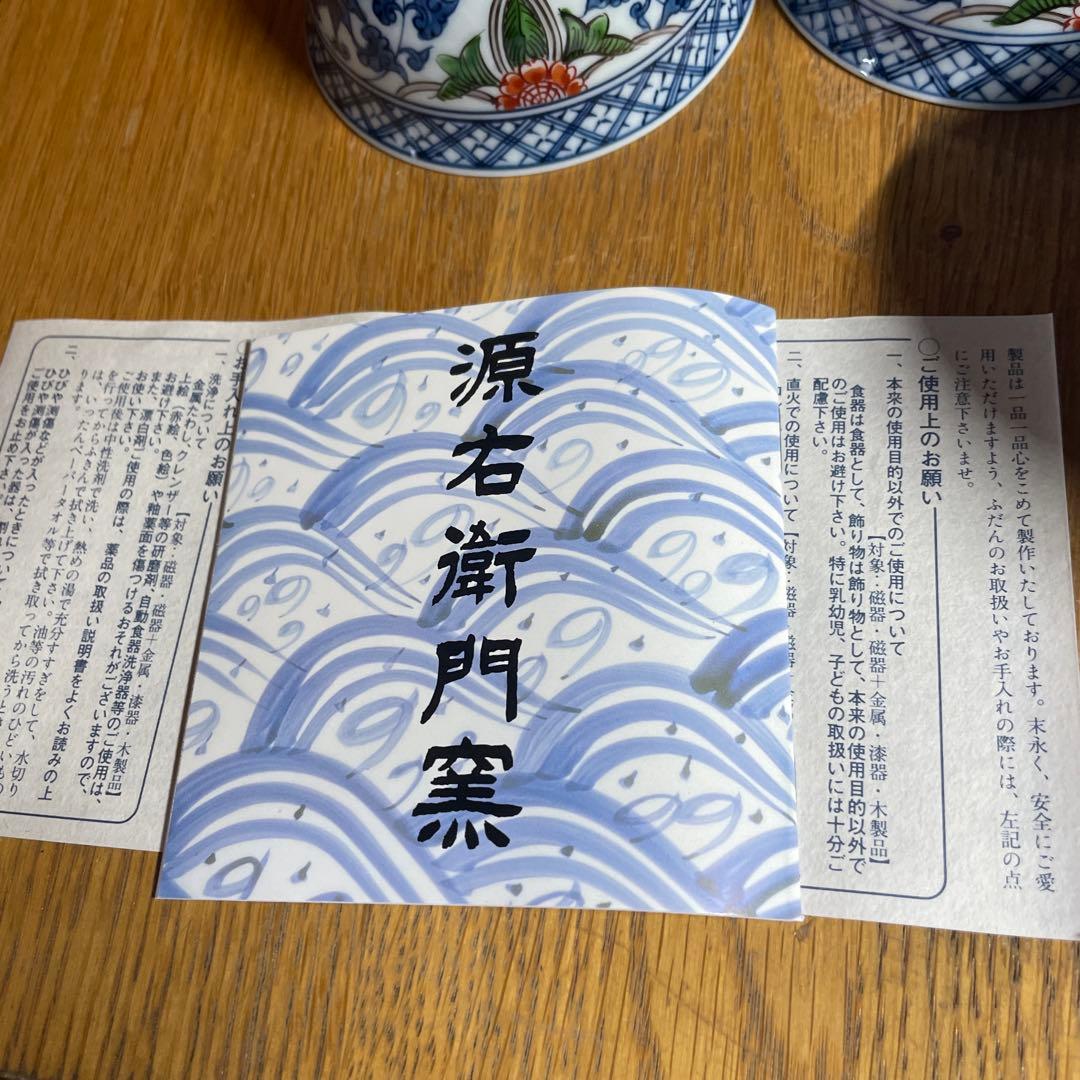 源右衛門窯
製品は一品一品心をこめて製作いたしております。末永く、安全にご愛
用いただけますよう、ふだんのお取扱いやお手入れの際には、左記の点
にご注意下さいませ。
○ご使用上のお願い
一、本来の使用目的以外でのご使用について
【対象・磁器・磁器＋金属・漆器・木製品】
食器は食器として、飾り物は飾り物として、本来の使用目的以外で
のご使用はお避け下さい。特に乳幼児、子どもの取扱いには十分ご
配慮下さい。
二、直火での使用について【対象・磁器
お手入れ上のお願い
【対象・磁器・磁器＋金属・漆器・木製品】
一、洗浄について
金属たわし、クレンザー等の研磨剤、自動食器洗浄器等のご使用は、
上絵（赤絵、色絵）や釉薬面を傷つけるおそれがございますので、
お避け下さい。
また、漂白剤ご使用の際は、薬品の取扱い説明書をよくお読みの上
お使い下さい。
ご使用後は中性洗剤で洗い、熱めの湯で充分すすぎをして、水切り
を行ってからふきんで拭き上げて下さい。油等の汚れのひどいもの
は、いったんペーパータオル等で拭き取ってから洗うと
ります。
二、ひびや割傷などが入ったときについて
ひびや割傷が入った器は、
ご使用をお止め下さい。